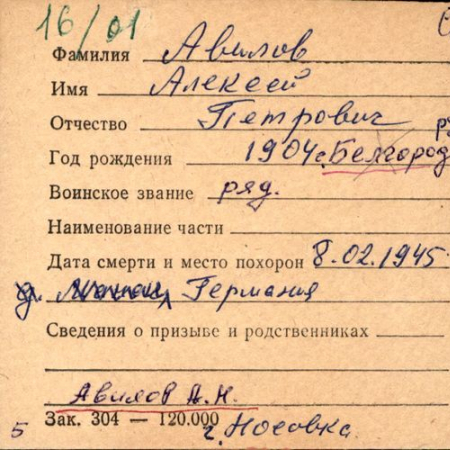 16/01
Фамилия Авилов
Имя Алексей
Отчество Петрович
Год рождения 1904г. Белгород
Воинское звание ряд.
Наименование части
Дата смерти и место похорон 8.02.1945
Германия
Сведения о призыве и родственниках
Авилов А.Н.
Зак. 304 — 120.000
5 г. Носовка